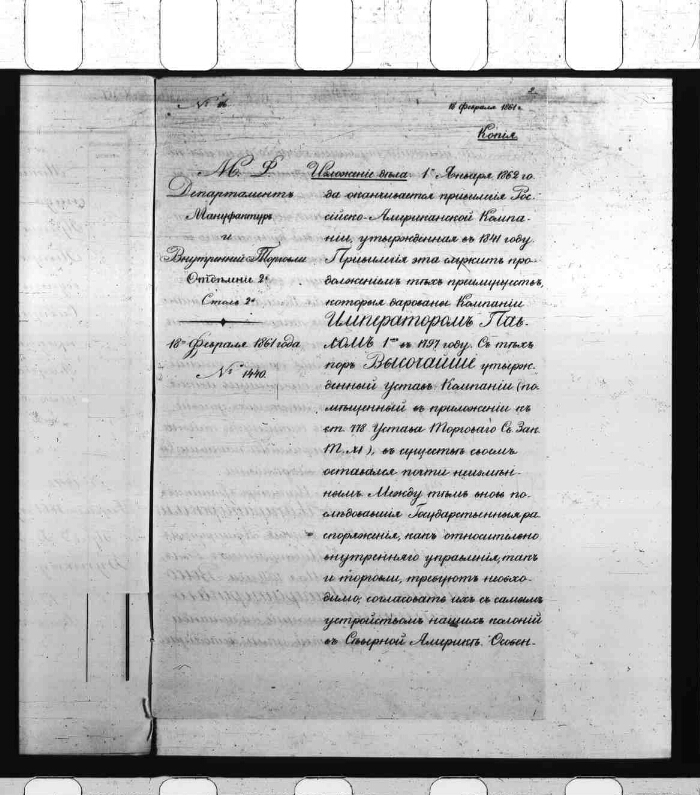 16 февраля 1861 г.
Копія
М. Ф.
Департаментъ
Мануфактуръ
и
Внутренней Торговли
Отдѣленіе 2е
Столъ 2й
18го Февраля 1861 года
№ 1440.
Изложеніе дѣла. 1го Января 1862 го-
да оканчивается привилегія Рос-
сійско-Американской Компа-
ніи, утвержденная въ 1841 году.
Привилегія эта служитъ про-
долженіемъ тѣхъ преимуществъ,
которыя дарованы Компаніи
Императоромъ Пав-
ломъ 1мъ въ 1797 году. Съ тѣхъ
поръ Высочайше утверж-
денный уставъ Компаніи (по-
мѣщенный въ приложеніи къ
ст. 778 Устава Торговаго Св. Зак.
Т. XI), въ существѣ своемъ
оставался почти неизмѣн-
нымъ. Между тѣмъ вновь по-
слѣдовавшія Государственныя ра-
споряженія, какъ относительно
внутренняго управленія, такъ
и торговли, требуютъ необхо-
димо, согласовать ихъ съ самымъ
устройствомъ нашихъ колоній
въ Сѣверной Америкѣ. Особен-